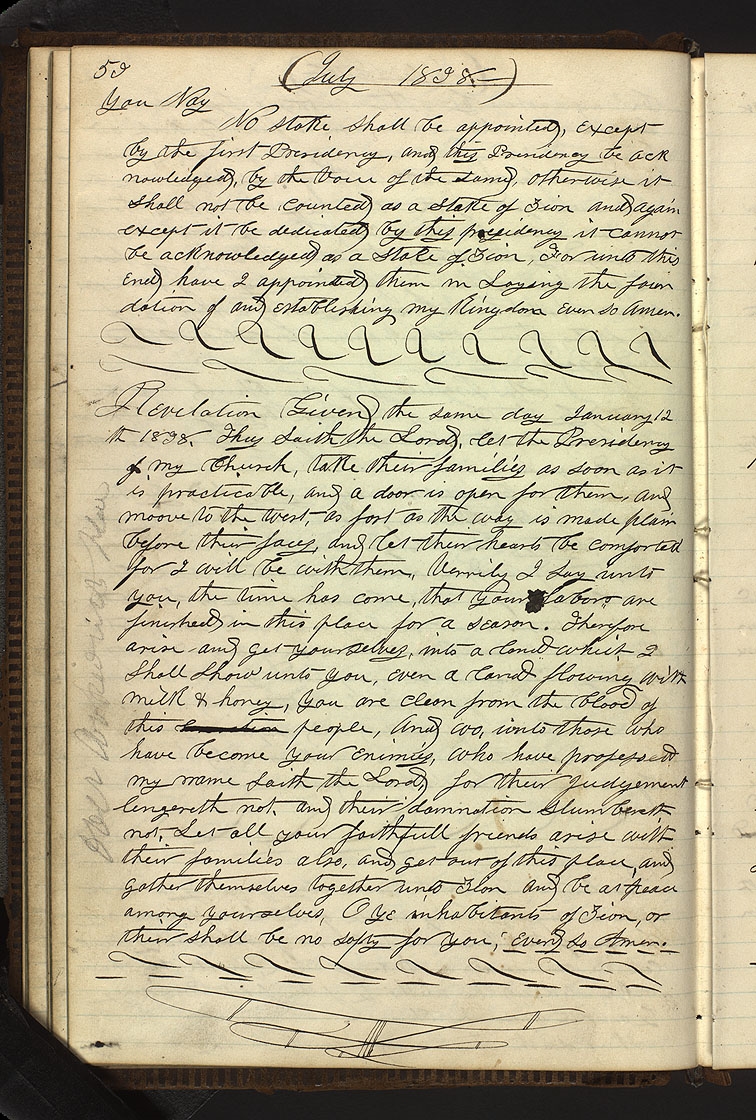 53
(July 1838)
You Nay
No stake shall be appointed, except
by the first Presidency, and this Presidency be ack
nowledged, by the voice of the same, otherwise it
shall not be counted as a stake of Zion and again
except it be dedicated by this presidency it cannot
be acknowledged as a stake of Zion, For unto this
end have I appointed them in Laying the foun
dation of and establishing my Kingdom Even so Amen.
Revelation Given the same day January 12
th 1838. Thus Saith the Lord, let the Presidency
of my Church, take their families as soon as it
is practicable, and a door is open for them, and
moove to the west, as fast as the way is made plain
before their faces, and let their hearts be comforted
for I will be with them, Verrily I say unto
you, the time has come, that your labors are
finished in this place for a season. Therefore
arise and get yourselves, into a land which I
shall show unto you, even a land flowing with
milk & honey, you are clean from the blood of
this people, And wo, unto those who
have become your enimies, who have professed
my name saith the Lord, for their judgement
lengereth not, and their damnation slumbereth
not, Let all your faithfull friends arise with
their families also, and get out of this place, and
gather themselves together unto Zion and be at peace
among yourselves, O ye inhabitants of Zion, or
their shall be no safty for you, Even so Amen.